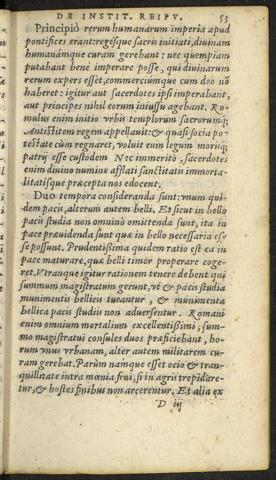 DE INSTIT. REIPV. 53
Principiò rerum humanarum imperia apud
pontifices erant: regesque sacris initiati, diuinam
humanámque curam gerebant: nec quempiam
putabant benè imperare posse, qui diuinarum
rerum expers esset, commerciúmque cum deo nō
haberet: igitur aut sacerdotes ipsi imperabant,
aut principes nihil eorum iniussu agebant. Ro-
mulus enim initio vrbis templorum sacrorumq́;
Antistitem regem appellauit: & quasi socia po-
testate cùm regnaret, voluit eum legum morisq́;
patrij esse custodem Nec immeritò, sacerdotes
enim diuino numine afflati sanctitatis immorta-
litatísque præcepta nos edocent.
Duo tempora consideranda sunt: vnum qui-
dem pacis, alterum autem belli. Et sicut in bello
pacis studia non omninò omittenda sunt, ita in
pace præuidenda sunt quæ in bello necessaria es-
se possunt. Prudentissima quidem ratio est ea in
pace maturare, quæ belli timor properare coge-
ret. Vtranque igitur rationem tenere debent qui
summum magistratum gerunt, vt & pacis studia
munimentis bellicis tueantur, & munimenta
bellica pacis studiis non aduersentur. Romani
enim omnium mortalium excellentissimi, sum-
mo magistratui consules duos præficiebant, ho-
rum vnus vrbanam, alter autem militarem cu-
ram gerebat. Parùm namque esset ocio & tran-
quillitate intra mœnia frui, si in agris trepidare-
tur, & hostes finibus non arcerentur. Et alia ex
D iij